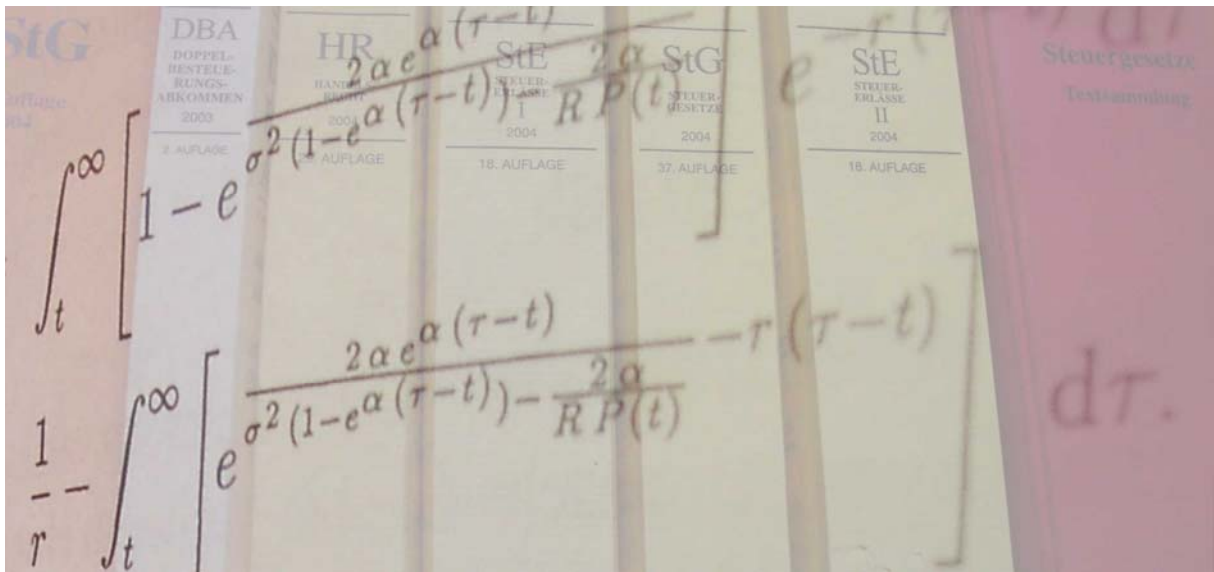 StG
DBA
DOPPEL-
BESTEUE-
RUNGS-
ABKOMMEN
2003
2. AUFLAGE
HR
HANDELS
RECHT
2004
AUFLAGE
StE
STEUER-
ERLÄSSE
I
2004
18. AUFLAGE
StG
STEUER-
GESETZE
2004
37. AUFLAGE
StE
STEUER-
ERLÄSSE
II
2004
18. AUFLAGE
Steuergesetze
Textsammlung
∫_t^∞ [1 − e^{\frac{2 α e^{α (τ−t)}}{σ^2 (1−e^{α (τ−t)}) − \frac{2 α}{R P(t)}}}] e^{−r (τ−t)} dτ
\frac{1}{r} − ∫_t^∞ [e^{\frac{2 α e^{α (τ−t)}}{σ^2 (1−e^{α (τ−t)}) − \frac{2 α}{R P(t)}} − r (τ−t)}] dτ.